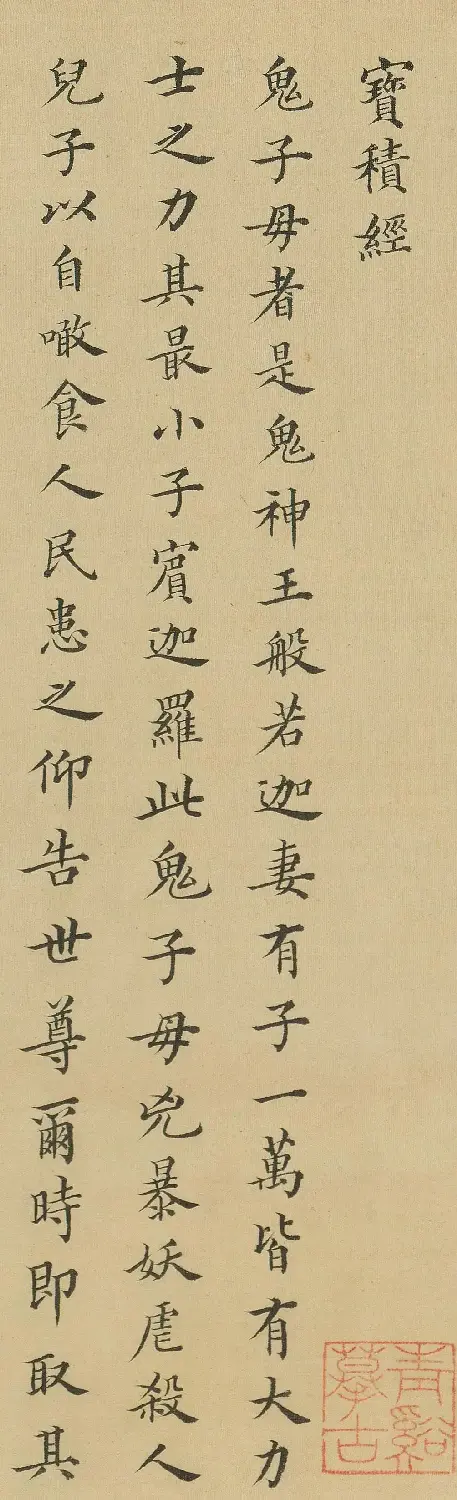 寶積經
鬼子毋者是鬼神王般若迦妻有子一萬皆有大力
士之力其最小子賓迦羅此鬼子毋兇暴妖虐殺人
兒子以自噉食人民患之仰告世尊爾時即取其
青谿摹古